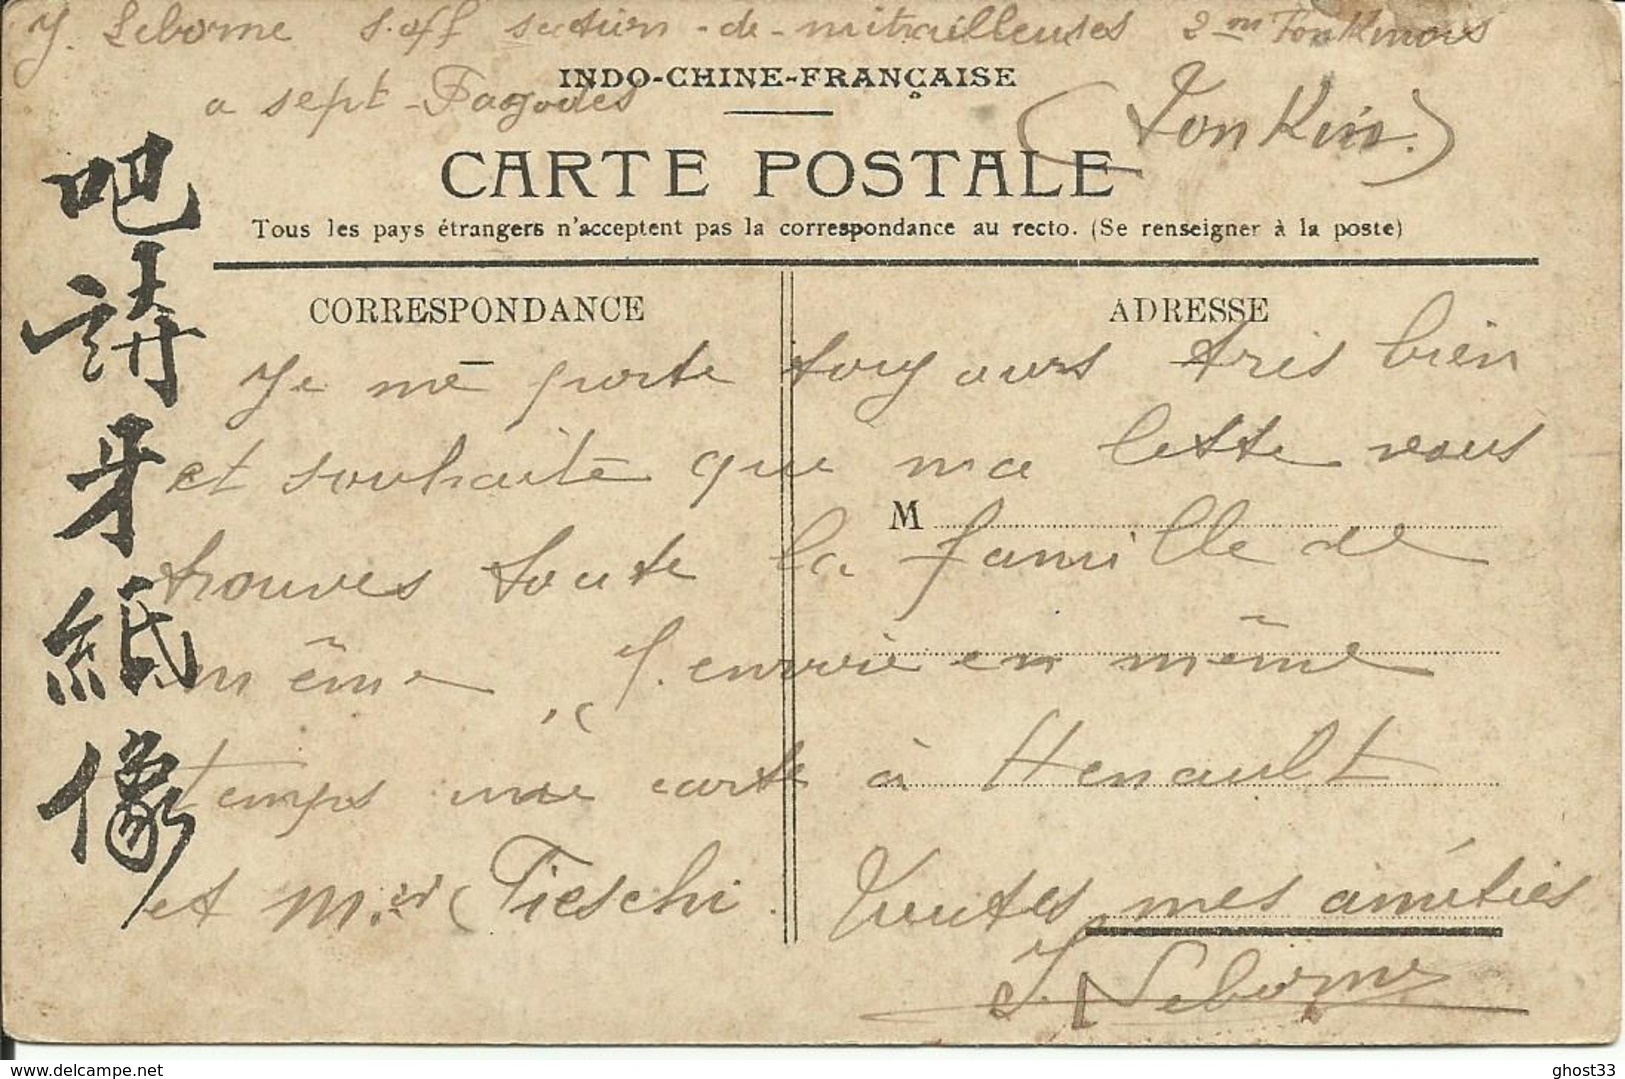 J. Leborne S.off section-de-mitrailleuses 2me Tonkinois
INDO-CHINE-FRANÇAISE
a sept-Pagodes
(Tonkin.)
CARTE POSTALE
Tous les pays étrangers n'acceptent pas la correspondance au recto. (Se renseigner à la poste)
吧請牙紙像
CORRESPONDANCE
ADRESSE
Je me porte toujours tres bien
et souhaite que ma lettre vous
M
trouves toute la famille de
même J'envoie en même
temps une carte à Henault
et Mr Fieschi.
Toutes mes amitiés
J. Leborne
delcampe.net
ghost33